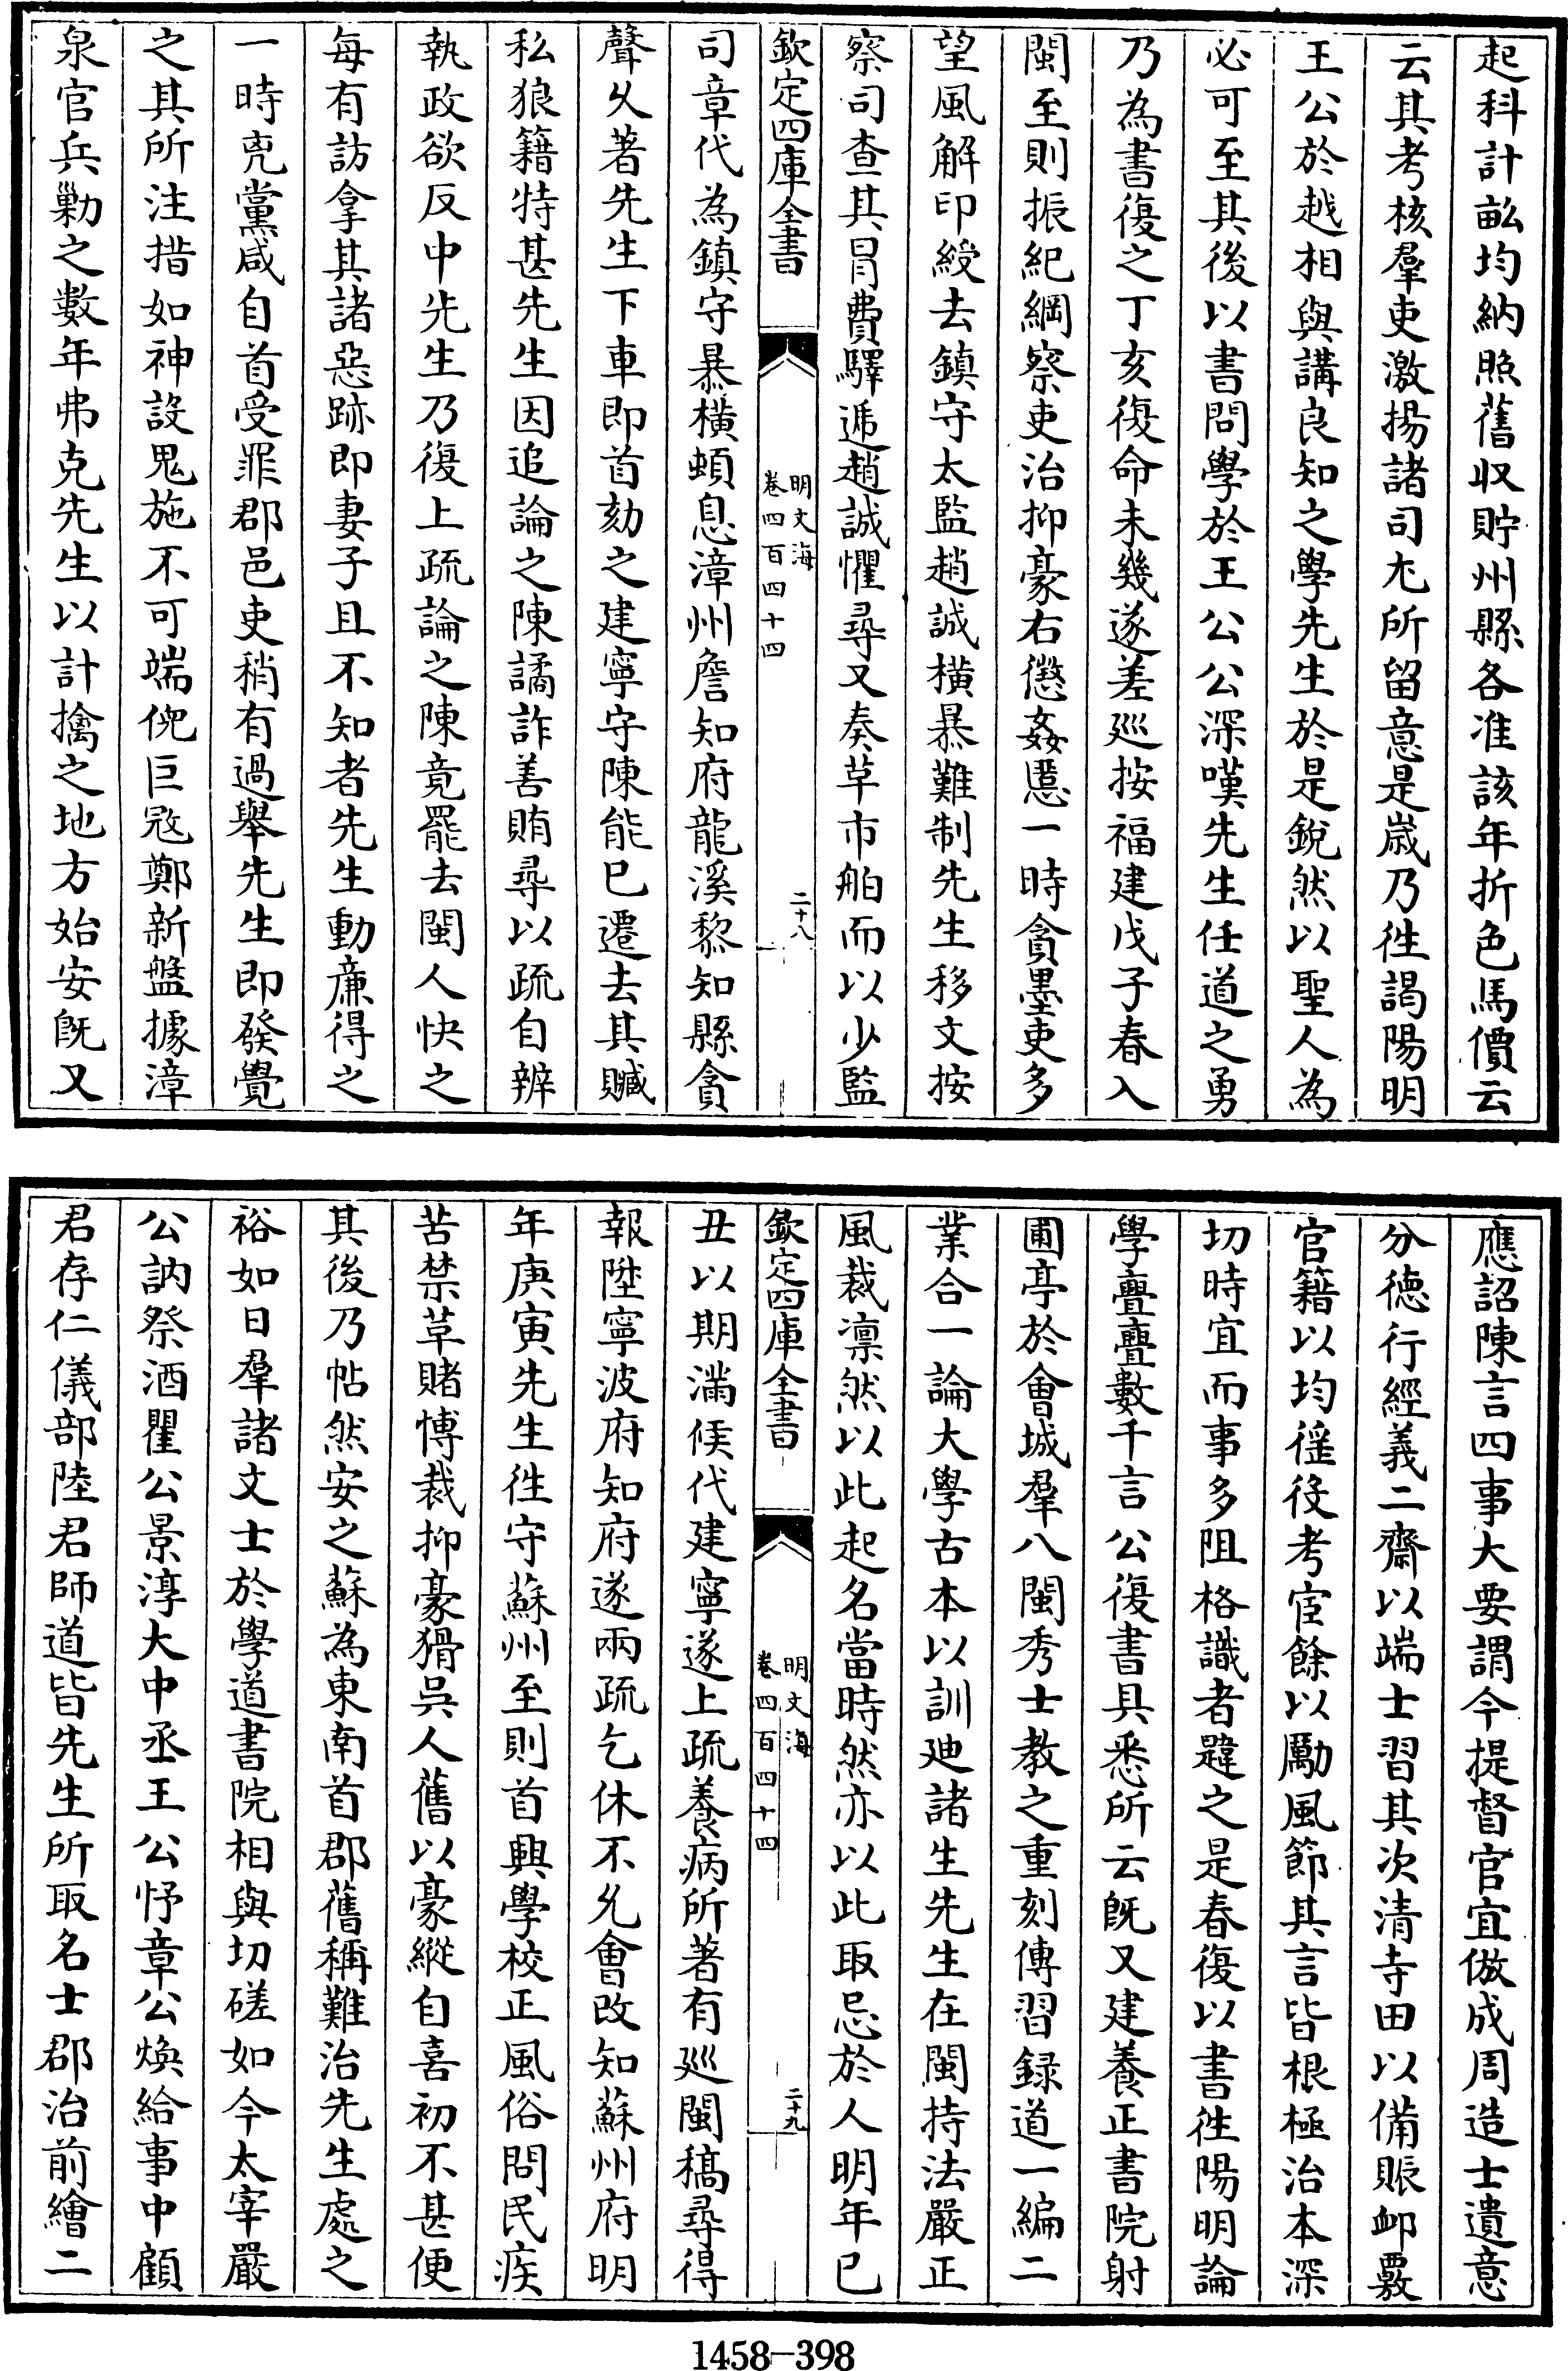 起科計畝均納照舊収貯州縣各准該年折色馬價云
云其考核羣吏激揚諸司尤所留意是嵗乃徃謁陽明
王公於越相與講良知之學先生於是銳然以聖人為
必可至其後以書問學於王公公深嘆先生任道之勇
乃為書復之丁亥復命未幾遂差廵按福建戊子春入
閩至則振紀綱察吏治抑豪右懲姦慝一時貪墨吏多
望風解印綬去鎮守太監趙誠横暴難制先生移文按
察司查其冒費驛逓趙誠懼尋又奏革市舶而以少監
欽定四庫全書
明文海
卷四百四十四
二十八
司章代為鎮守暴横頓息漳州詹知府龍溪黎知縣貪
聲乆著先生下車即首劾之建寧守陳能已遷去其贓
私狼籍特甚先生因追論之陳譎詐善賄尋以疏自辨
執政欲反中先生乃復上疏論之陳竟罷去閩人快之
每有訪拿其諸惡跡即妻子且不知者先生動亷得之
一時兇黨咸自首受罪郡邑吏稍有過舉先生即發覺
之其所注措如神設鬼施不可端倪巨冦鄭新盤據漳
泉官兵勦之數年弗克先生以計擒之地方始安旣又
應詔陳言四事大要謂今提督官宜倣成周造士遺意
分德行經義二齋以端士習其次清寺田以備賑邮覈
官籍以均徭役考宦餘以勵風節其言皆根極治本深
切時宜而事多阻格識者韙之是春復以書徃陽明論
學亹亹數千言公復書具悉所云旣又建養正書院射
圃亭於會城羣八閩秀士教之重刻傳習録道一編二
業合一論大學古本以訓廸諸生先生在閩持法嚴正
風裁凛然以此起名當時然亦以此取忌於人明年已
欽定四庫全書
明文海
卷四百四十四
二十九
丑以期滿候代建寧遂上疏養病所著有廵閩稿尋得
報陞寧波府知府遂兩疏乞休不允會改知蘇州府明
年庚寅先生徃守蘇州至則首興學校正風俗問民疾
苦禁草賭博裁抑豪猾吳人舊以豪縱自喜初不甚便
其後乃帖然安之蘇為東南首郡舊稱難治先生處之
裕如日羣諸文士於學道書院相與切磋如今太宰嚴
公訥祭酒瞿公景淳大中丞王公忬章公煥給事中顧
君存仁儀部陸君師道皆先生所取名士郡治前繪二
1458-398